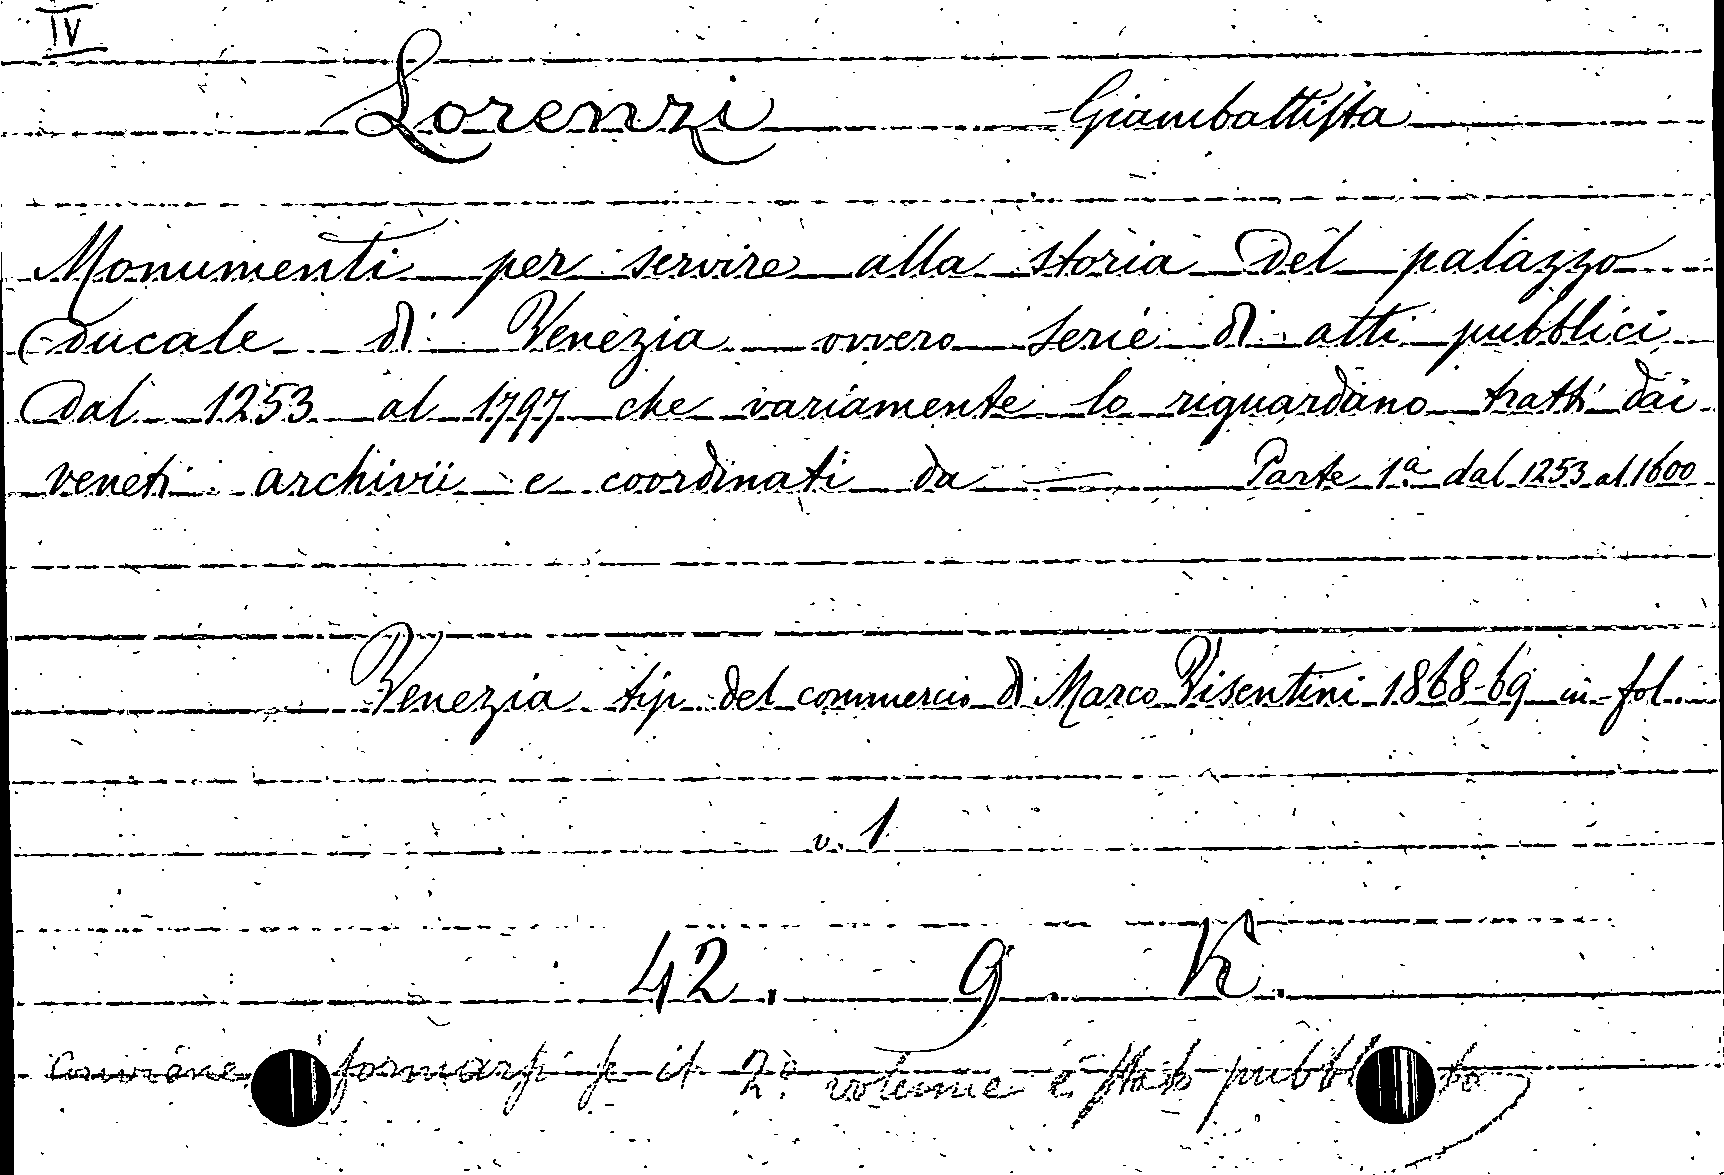 IV
Lorenzi Giambattista
Monumenti per servire alla storia del palazzo
ducale di Venezia ovvero serie di atti pubblici
dal 1253 al 1797 che variamente lo riguardano tratti dai
veneti archivii e coordinati da — Parte 1ª dal 1253 al 1600
Venezia tip. del commercio di Marco Visentini 1868-69 in fol.
v. 1
42. 9. K.
conviene formarsi se il 2º volume è stato pubbl to